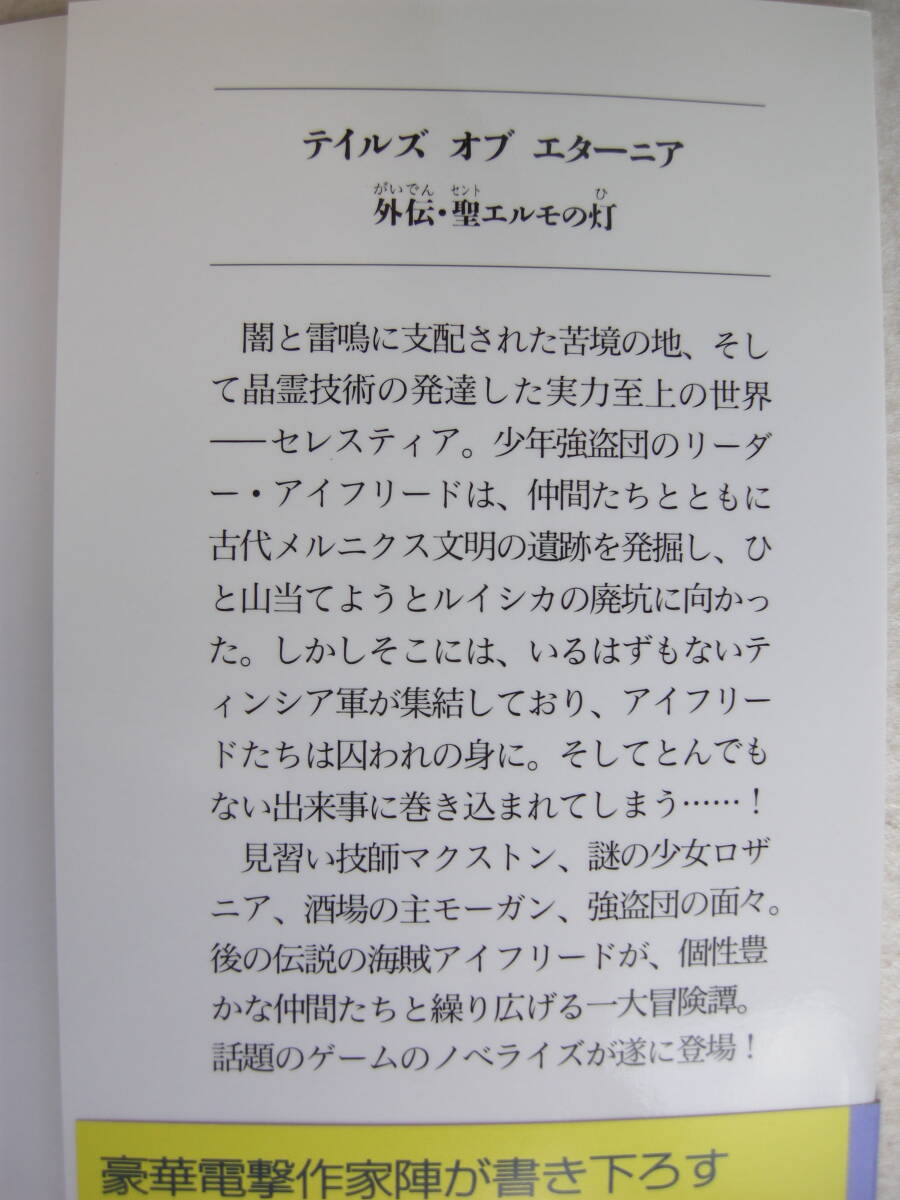 テイルズ オブ エターニア
がいでん セント ひ
外伝・聖エルモの灯
闇と雷鳴に支配された苦境の地、そし
て晶霊技術の発達した実力至上の世界
──セレスティア。少年強盗団のリーダ
ー・アイフリードは、仲間たちとともに
古代メルニクス文明の遺跡を発掘し、ひ
と山当てようとルイシカの廃坑に向かっ
た。しかしそこには、いるはずもないテ
ィンシア軍が集結しており、アイフリー
ドたちは囚われの身に。そしてとんでも
ない出来事に巻き込まれてしまう……！
見習い技師マクストン、謎の少女ロザ
ニア、酒場の主モーガン、強盗団の面々。
後の伝説の海賊アイフリードが、個性豊
かな仲間たちと繰り広げる一大冒険譚。
話題のゲームのノベライズが遂に登場！
豪華電撃作家陣が書き下ろす